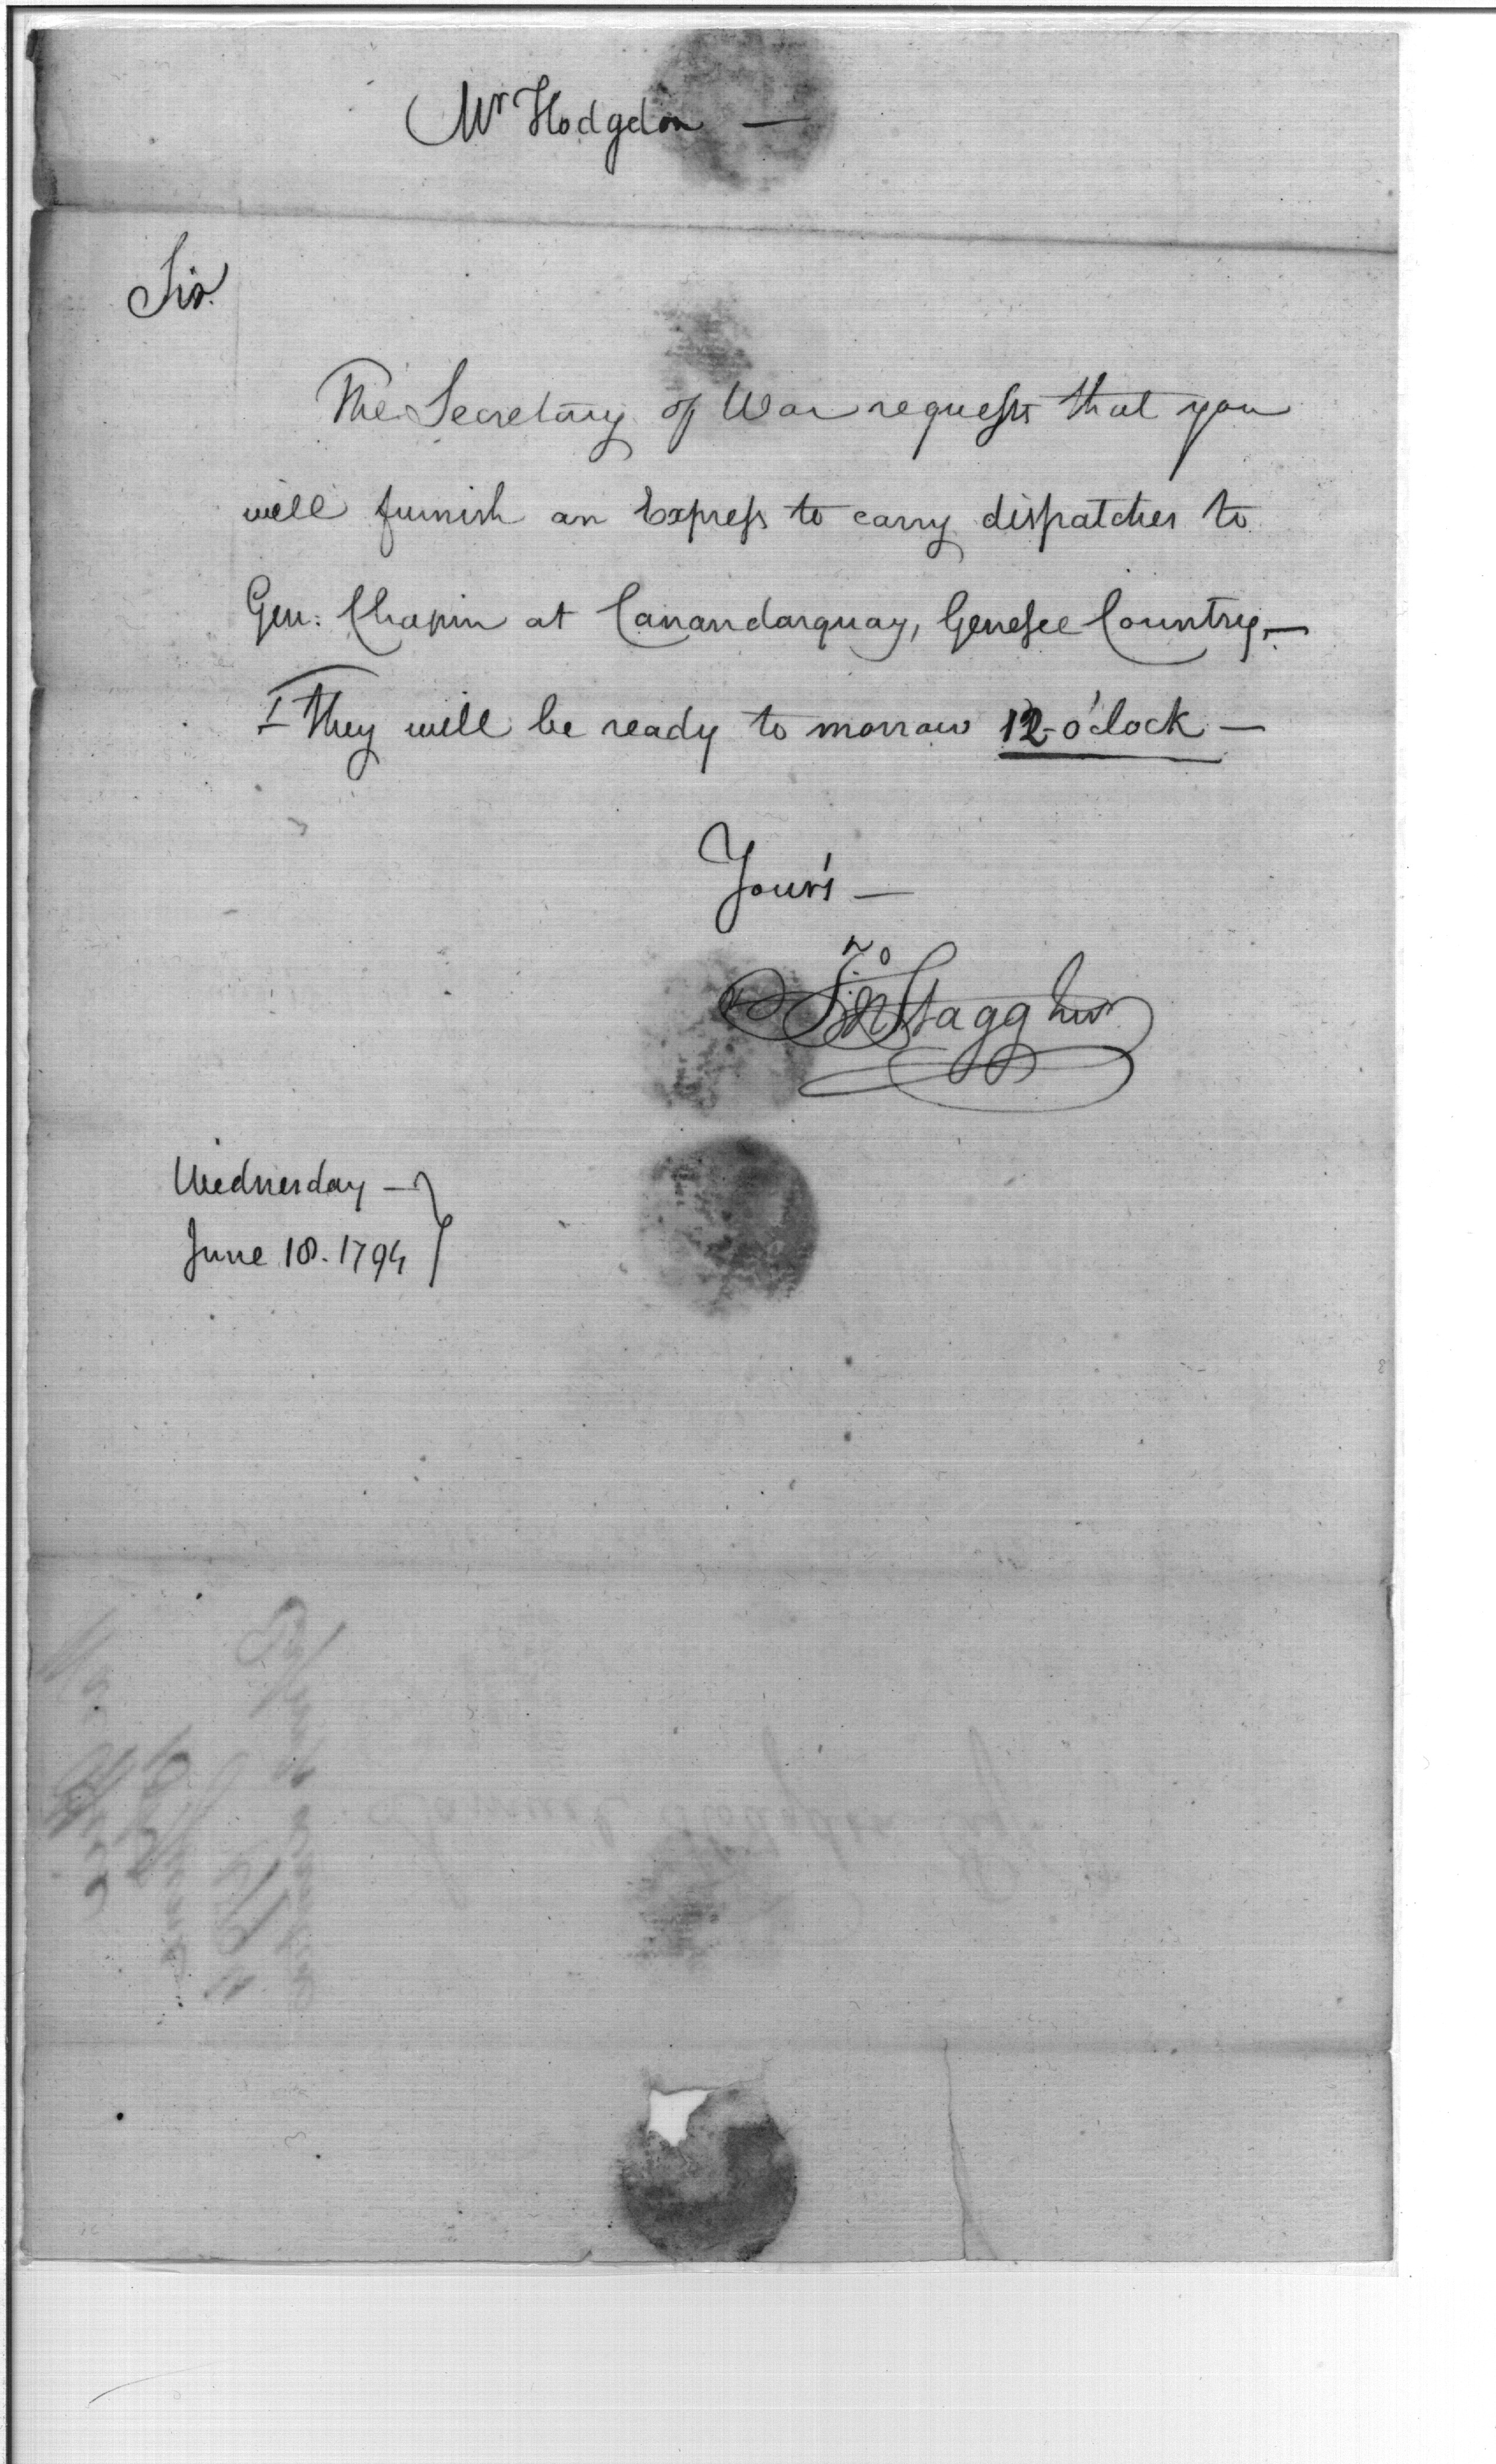 Mr Hodgdon —
Sir.
The Secretary of War requests that you
will furnish an Express to carry dispatches to
Gen: Chapin at Canandarquay, Genesee Country,—
They will be ready to morrow 12-o'clock —
Your's —
Jno Stagg Junr
Wednesday —
June 18. 1794